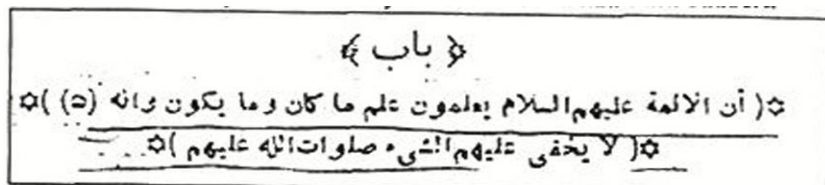 ﴿ باب ﴾
✡( أن الائمة عليهم السلام يعلمون علم ما كان وما يكون وانه (۵) )✡
✡( لا يخفى عليهم الشيء صلوات الله عليهم )✡